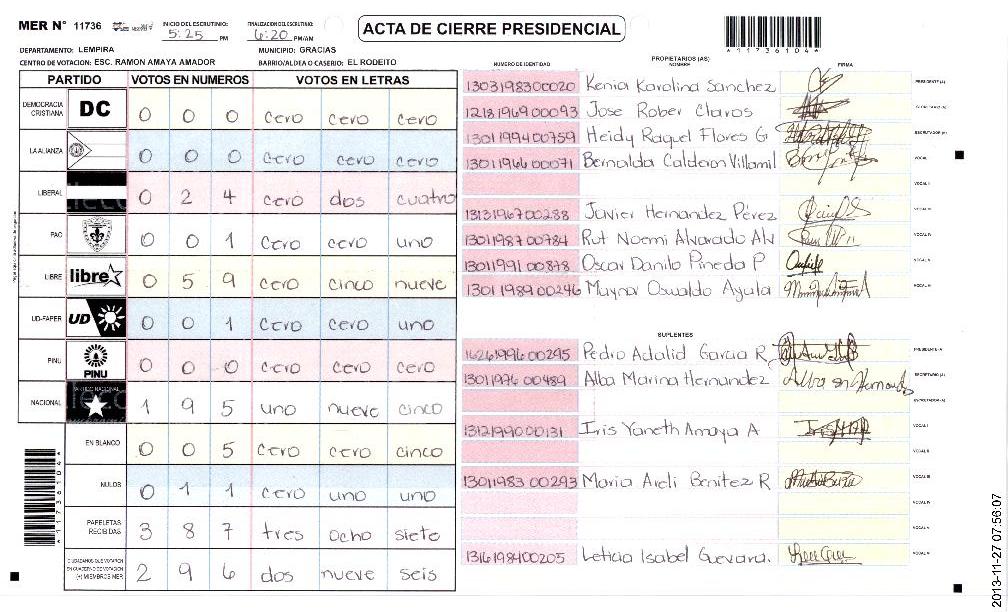 MER N° 11736
INICIO DEL ESCRUTINIO: 5:25 PM
FINALIZACION DEL ESCRUTINIO: 6:20 PM/AM
ACTA DE CIERRE PRESIDENCIAL
*11736104*
DEPARTAMENTO: LEMPIRA
MUNICIPIO: GRACIAS
CENTRO DE VOTACION: ESC. RAMON AMAYA AMADOR
BARRIO/ALDEA O CASERIO: EL RODEITO
PARTIDO VOTOS EN NUMEROS VOTOS EN LETRAS
DEMOCRACIA CRISTIANA DC 0 0 0 cero cero cero
LA ALIANZA 0 0 0 cero cero cero
LIBERAL 0 2 4 cero dos cuatro
PAC 0 0 1 cero cero uno
LIBRE libre 0 5 9 cero cinco nueve
UD-FAPER UD 0 0 1 cero cero uno
PINU PINU 0 0 0 cero cero cero
NACIONAL 1 9 5 uno nueve cinco
EN BLANCO 0 0 5 cero cero cinco
NULOS 0 1 1 cero uno uno
PAPELETAS RECIBIDAS 3 8 7 tres ocho siete
CIUDADANOS QUE VOTARON EN CUADERNO DE VOTACION (+) MIEMBROS MER 2 9 6 dos nueve seis
*11736104*
PROPIETARIOS (AS)
NUMERO DE IDENTIDAD NOMBRE FIRMA
1303198300020 Kenia Karolina Sanchez PRESIDENTE (A)
1218196900093 Jose Rober Claros SECRETARIO (A)
1301199400759 Heidy Raquel Flores G ESCRUTADOR (A)
1301196600071 Bernalda Calderon Villamil VOCAL I
VOCAL II
1313196700288 Javier Hernandez Pérez VOCAL III
1301198700784 Rut Noemi Alvarado Alv VOCAL IV
1301199100878 Oscar Danilo Pineda P VOCAL V
1301198900246 Maynor Oswaldo Ayala VOCAL VI
SUPLENTES
1626199600295 Pedro Adalid Garcia R PRESIDENTE (A)
1301197600489 Alba Marina Hernandez SECRETARIO (A)
ESCRUTADOR (A)
1312199000131 Iris Yaneth Amaya A VOCAL I
VOCAL II
1301198300293 Maria Areli Benitez R VOCAL III
VOCAL IV
VOCAL V
1316198400205 Leticia Isabel Guevara. VOCAL VI
2013-11-27 07:56:07